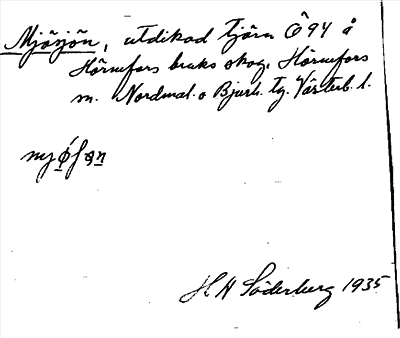 Mjösjön, utdikad tjärn Ö 94 å
Hörnefors bruks skog, Hörnefors
sn. Nordmal. o Bjurh. tg. Västerb. l.
mjøʃǝn
H H Söderberg 1935